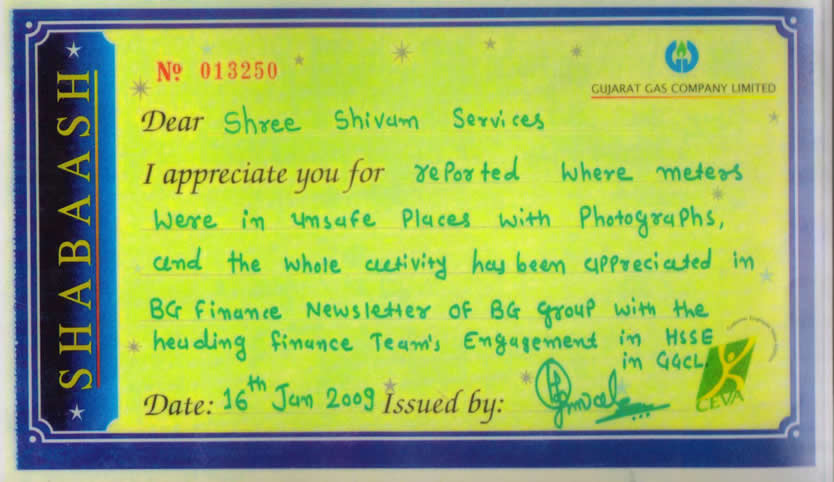 SHABAASH
№ 013250
GUJARAT GAS COMPANY LIMITED
Dear Shree Shivam Services
I appreciate you for reported where meters
were in unsafe places with Photographs,
and the whole activity has been appreciated in
BG Finance Newsletter of BG group with the
heading finance Team's Engagement in HSSE
in GGCL.
Date: 16th Jan 2009 Issued by:
CEVA